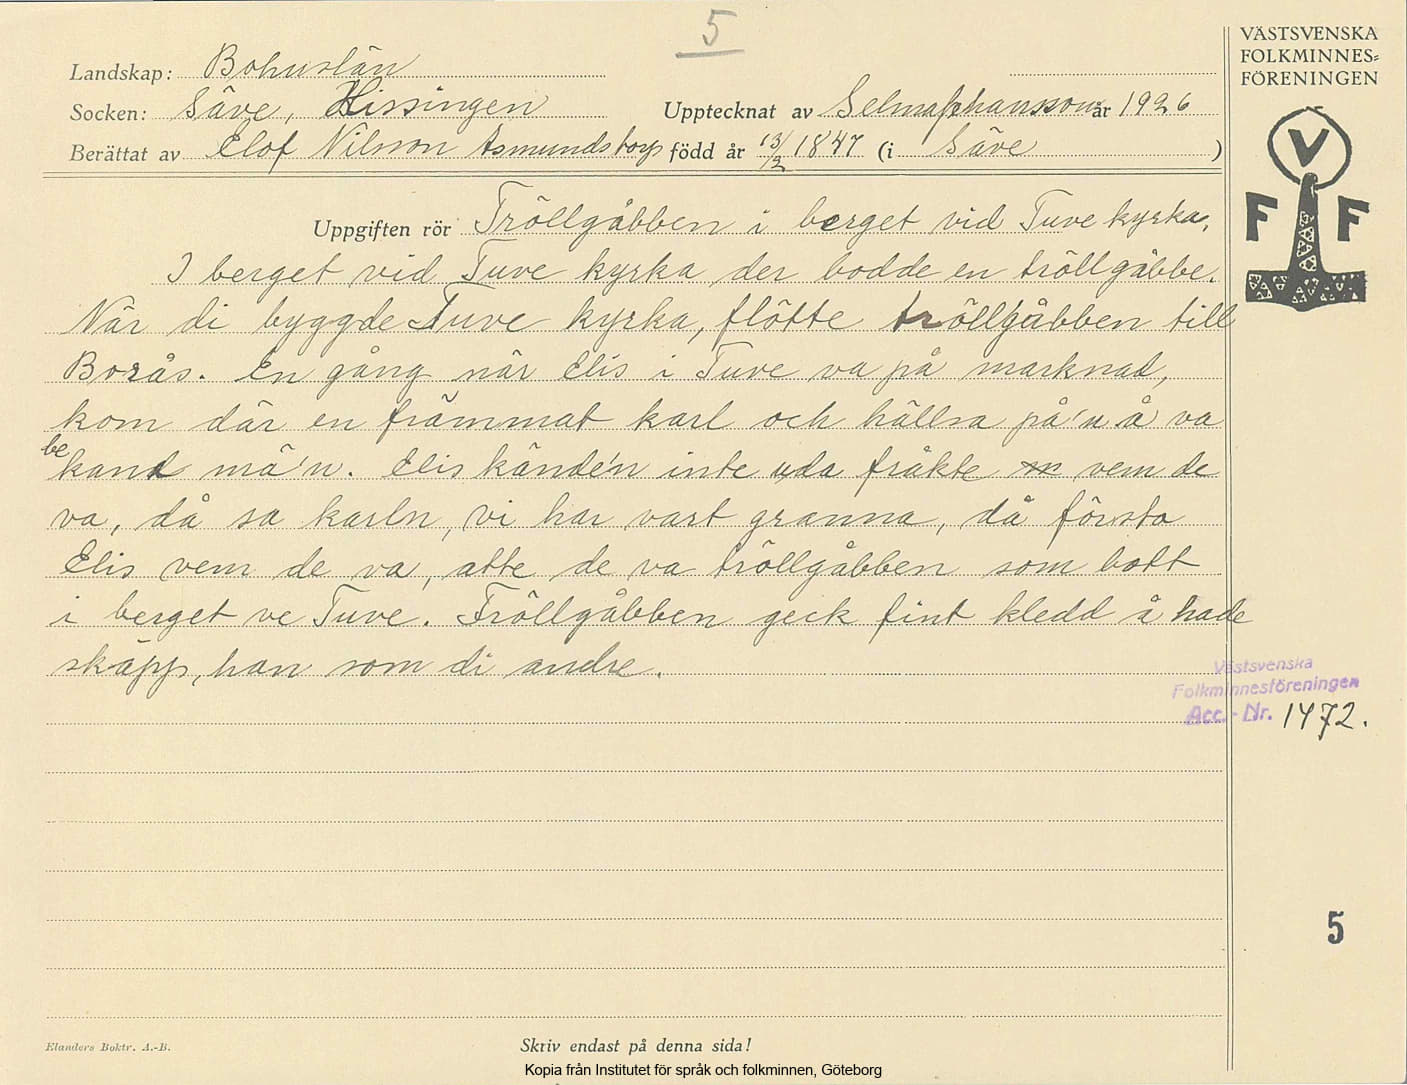 5
VÄSTSVENSKA
FOLKMINNES=
FÖRENINGEN
Landskap: Bohuslän
Socken: Säve, Hissingen Upptecknat av Selma Johansson år 1926
Berättat av Elof Nilsson Asmundstorp född år 13/2 1847 (i Säve )
V
F F
Uppgiften rör Tröllgåbben i berget vid Tuve kyrka.
I berget vid Tuve kyrka der bodde en tröllgåbbe.
När di byggde Tuve kyrka, flötte tröllgåbben till
Borås. En gång när Elis i Tuve va på marknad,
kom där en främmat karl och hällsa på'n å va
bekand mä'n. Elis kände'n inte uda fråkte vem de
va, då sa karln, vi har vart granna, då försto
Elis vem de va, atte de va tröllgåbben som bott
i berget ve Tuve. Tröllgåbben geck fint kledd å hade
skäpp, han som di andre.
Västsvenska
Folkminnesföreningen
Acc.-Nr. 1472.
5
Elanders Boktr. A.-B.
Skriv endast på denna sida!
Kopia från Institutet för språk och folkminnen, Göteborg